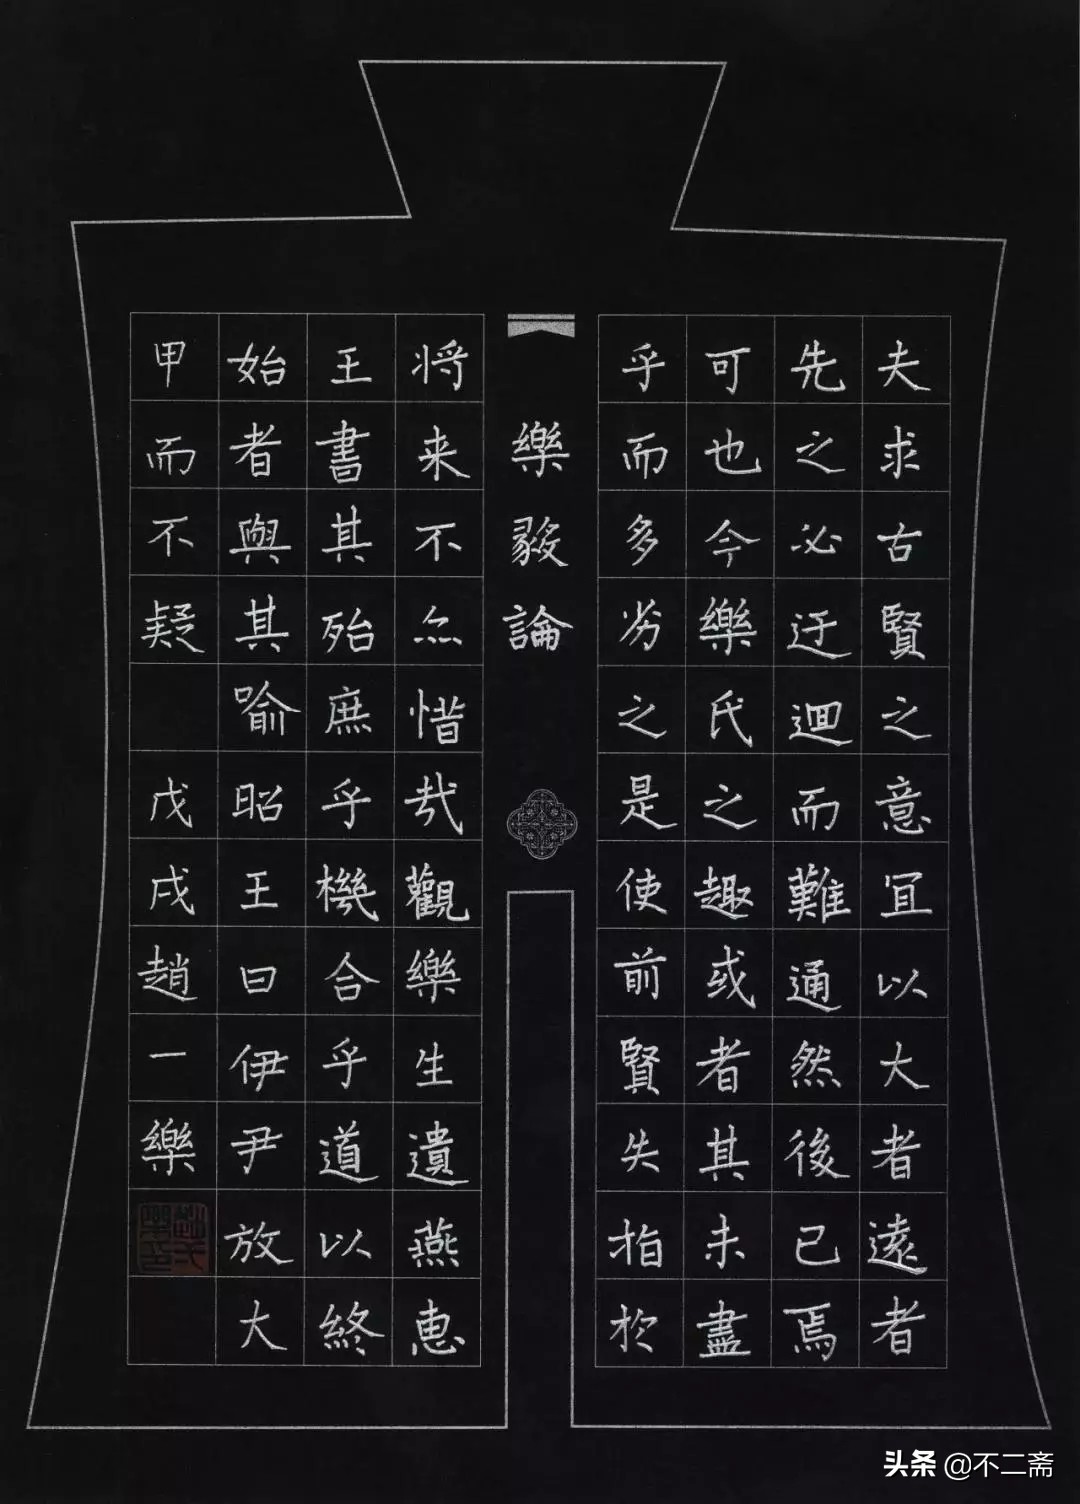 夫求古賢之意冝以大者遠者
先之必迂迴而難通然後已焉
可也今樂氏之趣或者其未盡
乎而多劣之是使前賢失指於
樂毅論
将来不亦惜哉觀樂生遺燕惠
王書其殆庶乎機合乎道以終
始者與其喻昭王曰伊尹放大
甲而不疑 戊戌趙一樂
头条 @不二斋